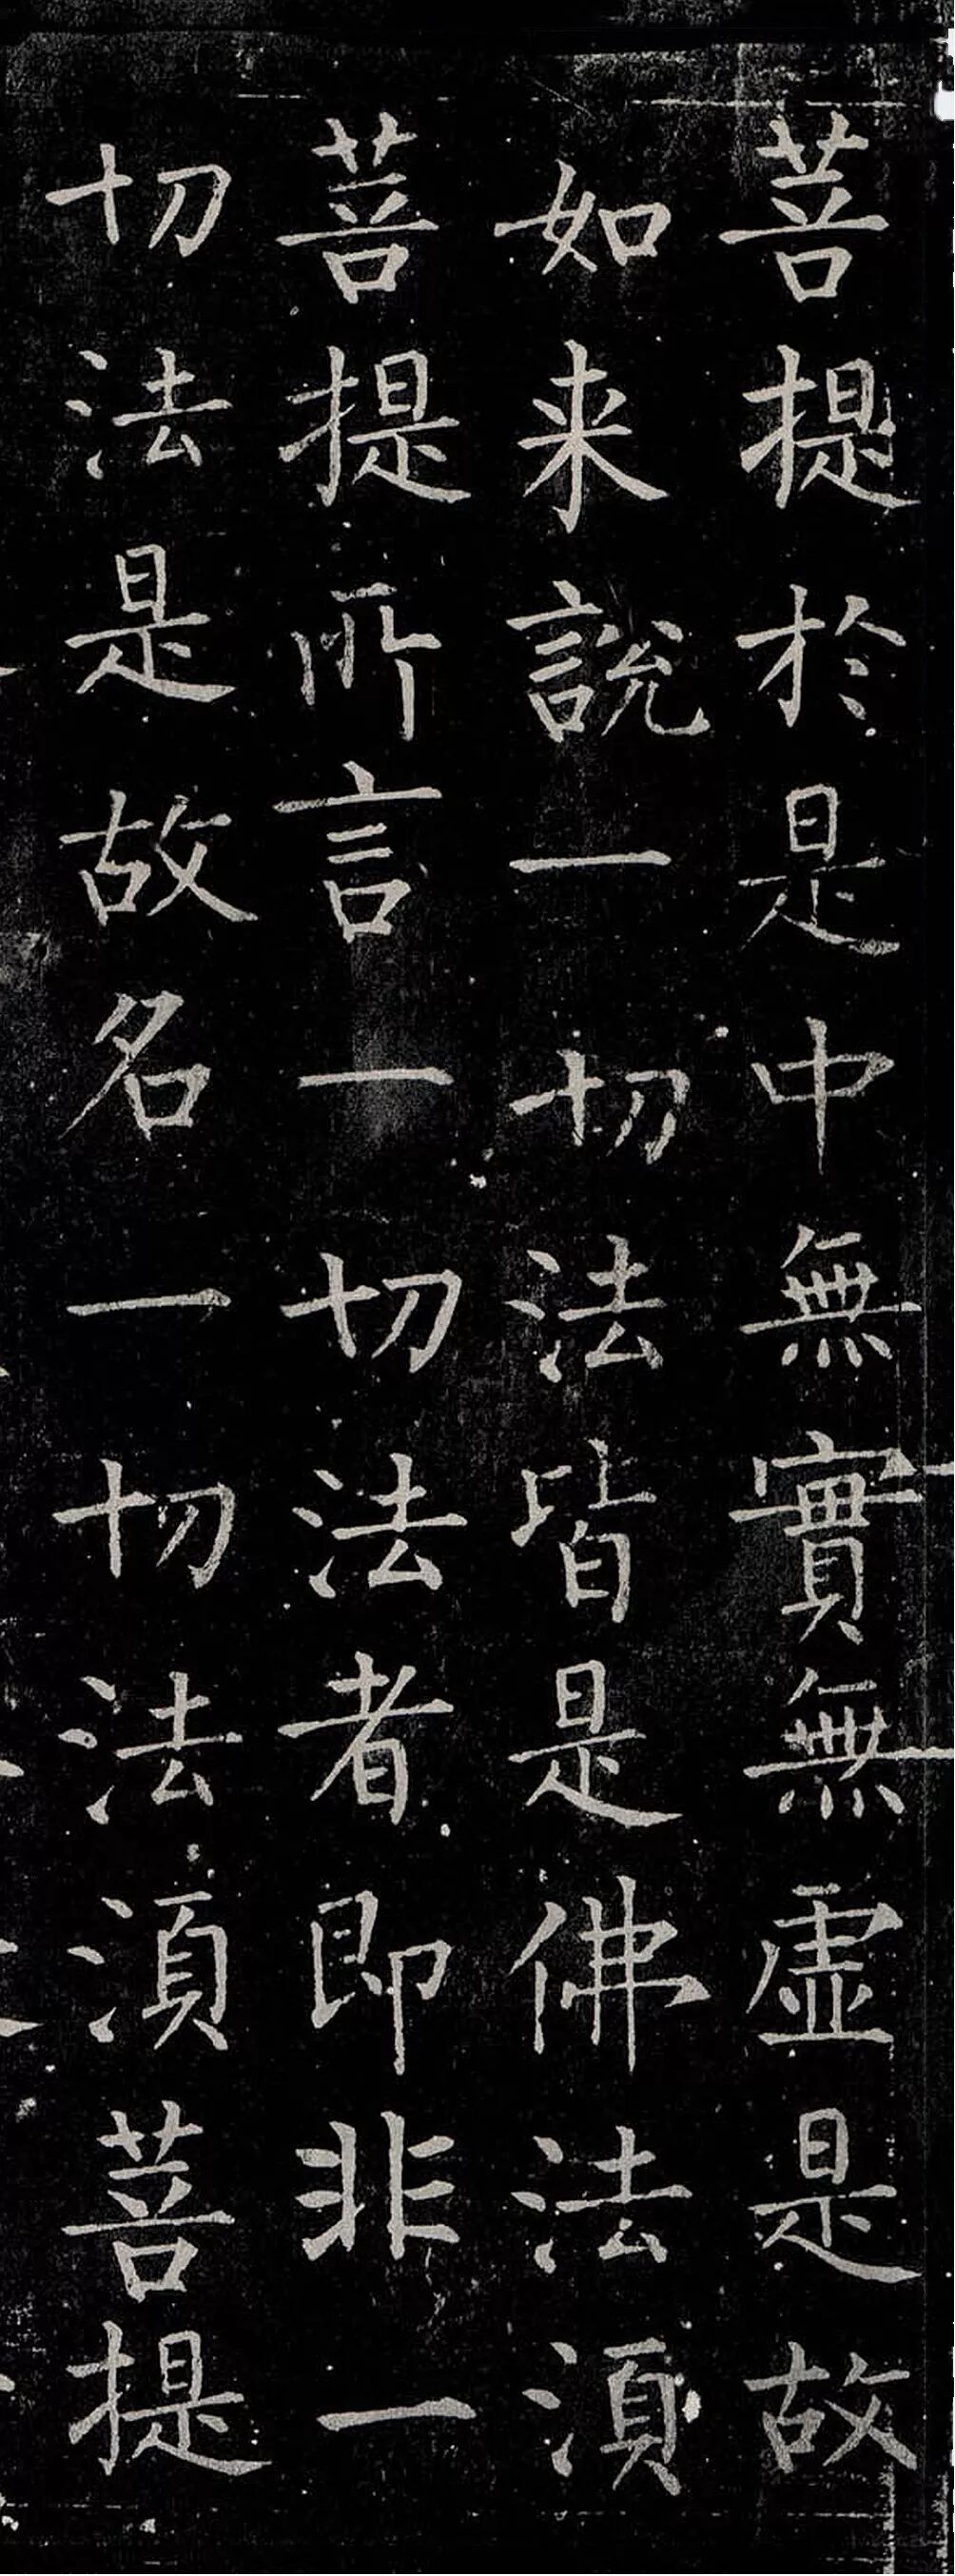 菩提於是中無實無虛是故
如来説一切法皆是佛法湏
菩提所言一切法者即非一
切法是故名一切法湏菩提